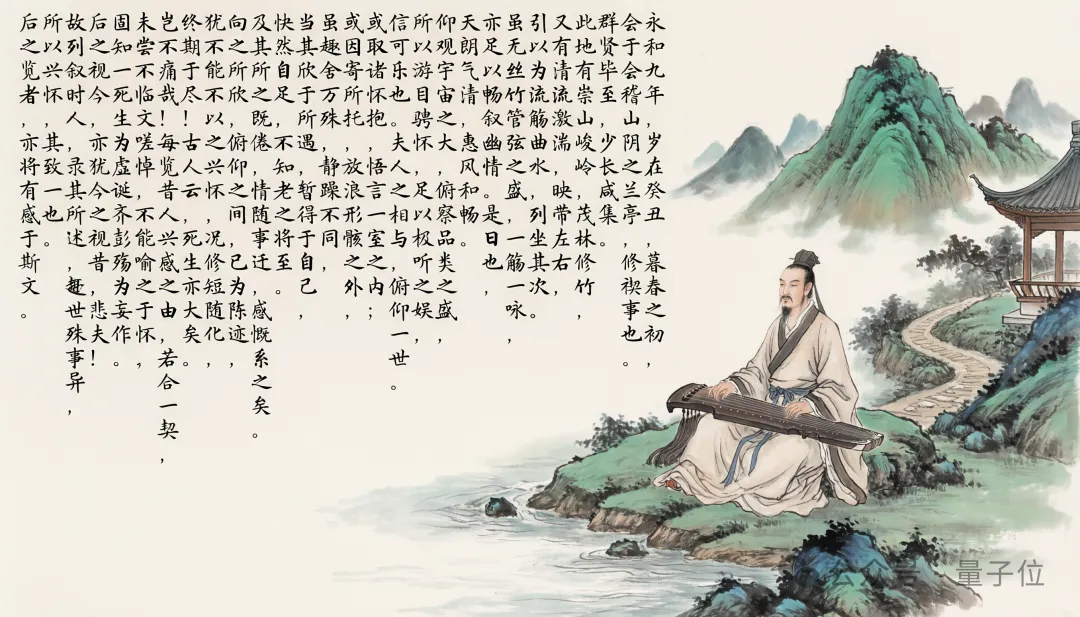 永和九年,岁在癸丑,暮春之初,
会于会稽山阴之兰亭,修禊事也。
群贤毕至,少长咸集。
此地有崇山峻岭,茂林修竹,
又有清流激湍,映带左右,
引以为流筋曲水,列坐其次。
虽无丝竹管弦之盛,一筋一咏,
亦足以畅叙幽情。是日也,
天朗气清,惠风和畅。
仰观宇宙之大,俯察品类之盛,
所以游目骋怀,足以极听之娱,
信可乐也。夫人之相与,俯仰一世。
或取诸怀抱,悟言一室之内;
或因寄所托,放浪形骸之外,
虽趣舍万殊,静躁不同,
当其欣于所遇,暂得于自己,
快然自足,不知老之将至。
及其所之既倦,情随事迁,感慨系之矣。
向之所欣,俯仰之间,已为陈迹,
犹不能不以之兴怀,况修短随化,
终期于尽!古人云,死生亦大矣。
岂不痛哉!每览昔人兴感之由,若合一契,
未尝不临文嗟悼,不能喻之于怀,
固知一死生为虚诞,齐彭殇为妄作。
后之视今,亦犹今之视昔,悲夫!
故列叙时人,录其所述,趣世殊事异,
所以兴怀,其致一也。
后之览者,亦将有感于斯文。
公众号 量子位